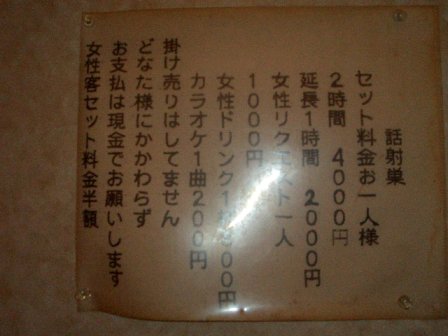 話射巣
セット料金お一人様
2時間 4000円
延長1時間 2000円
女性リクエスト一人
1000円
女性ドリンク1杯800円
カラオケ1曲200円
掛け売りはしてません
どなた様にかかわらず
お支払は現金でお願いします
女性客セット料金半額